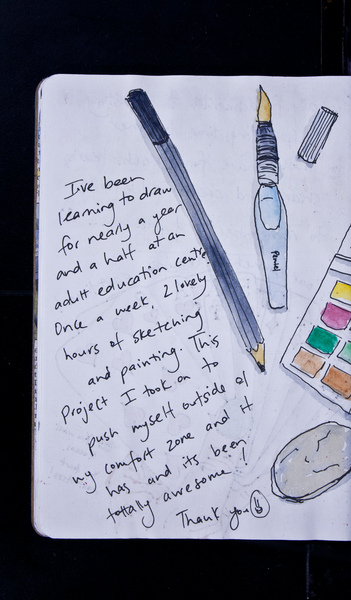 I've been
learning to draw
for nearly a year
and a half at an
adult education centre
Once a week, 2 lovely
hours of sketching
and painting. This
Project I took on to
push myself outside of
my comfort zone and it
has and its been
totally awesome!
Thank you
Pentel